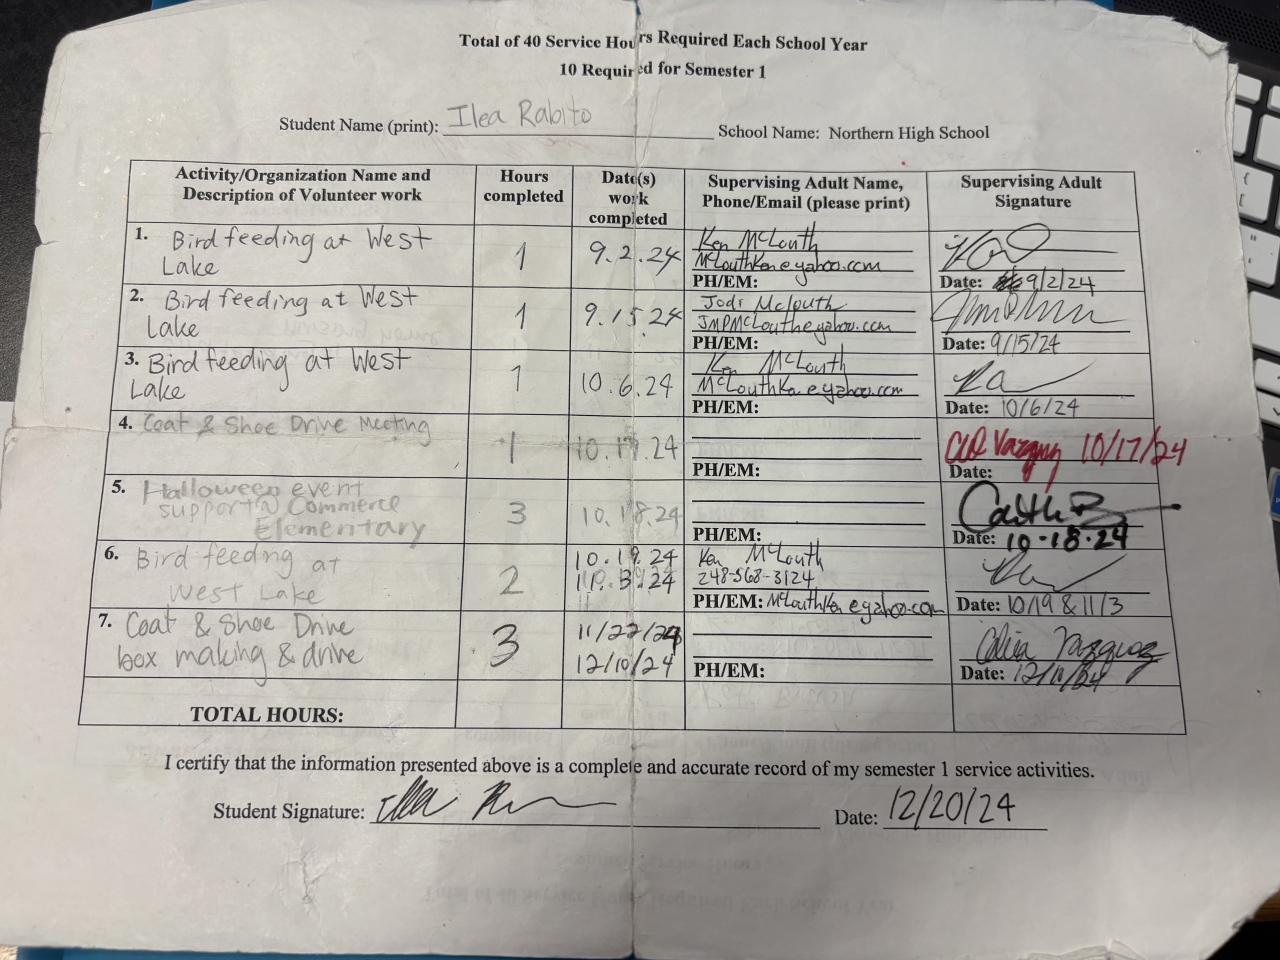 Total of 40 Service Hours Required Each School Year
10 Required for Semester 1
Student Name (print): Ilea Rabito School Name: Northern High School
Activity/Organization Name and Description of Volunteer work
Hours completed
Date(s) work completed
Supervising Adult Name, Phone/Email (please print)
Supervising Adult Signature
1. Bird feeding at West
Lake
1
9.2.24
Ken McLouth
McLouthKen@yahoo.com
PH/EM:
Date: 9/2/24
2. Bird feeding at West
Lake
1
9.15.24
Jodi McLouth
JMPMcLouth@yahoo.com
PH/EM:
Date: 9/15/24
3. Bird feeding at West
Lake
1
10.6.24
Ken McLouth
McLouthKen@yahoo.com
PH/EM:
Date: 10/6/24
4. Coat & Shoe Drive Meeting
1
10.17.24
PH/EM:
Vazquez 10/17/24
Date:
5. Halloween event
support @ Commerce
Elementary
3
10.18.24
PH/EM:
Date: 10.18.24
6. Bird feeding at
West Lake
2
10.19.24
11.3.24
Ken McLouth
248-568-3124
PH/EM: McLouthKen@yahoo.com
Date: 10/19 & 11/3
7. Coat & Shoe Drive
box making & drive
3
11/22/24
12/10/24
PH/EM:
Vazquez
Date: 12/11/24
TOTAL HOURS:
I certify that the information presented above is a complete and accurate record of my semester 1 service activities.
Student Signature: Ilea Date: 12/20/24